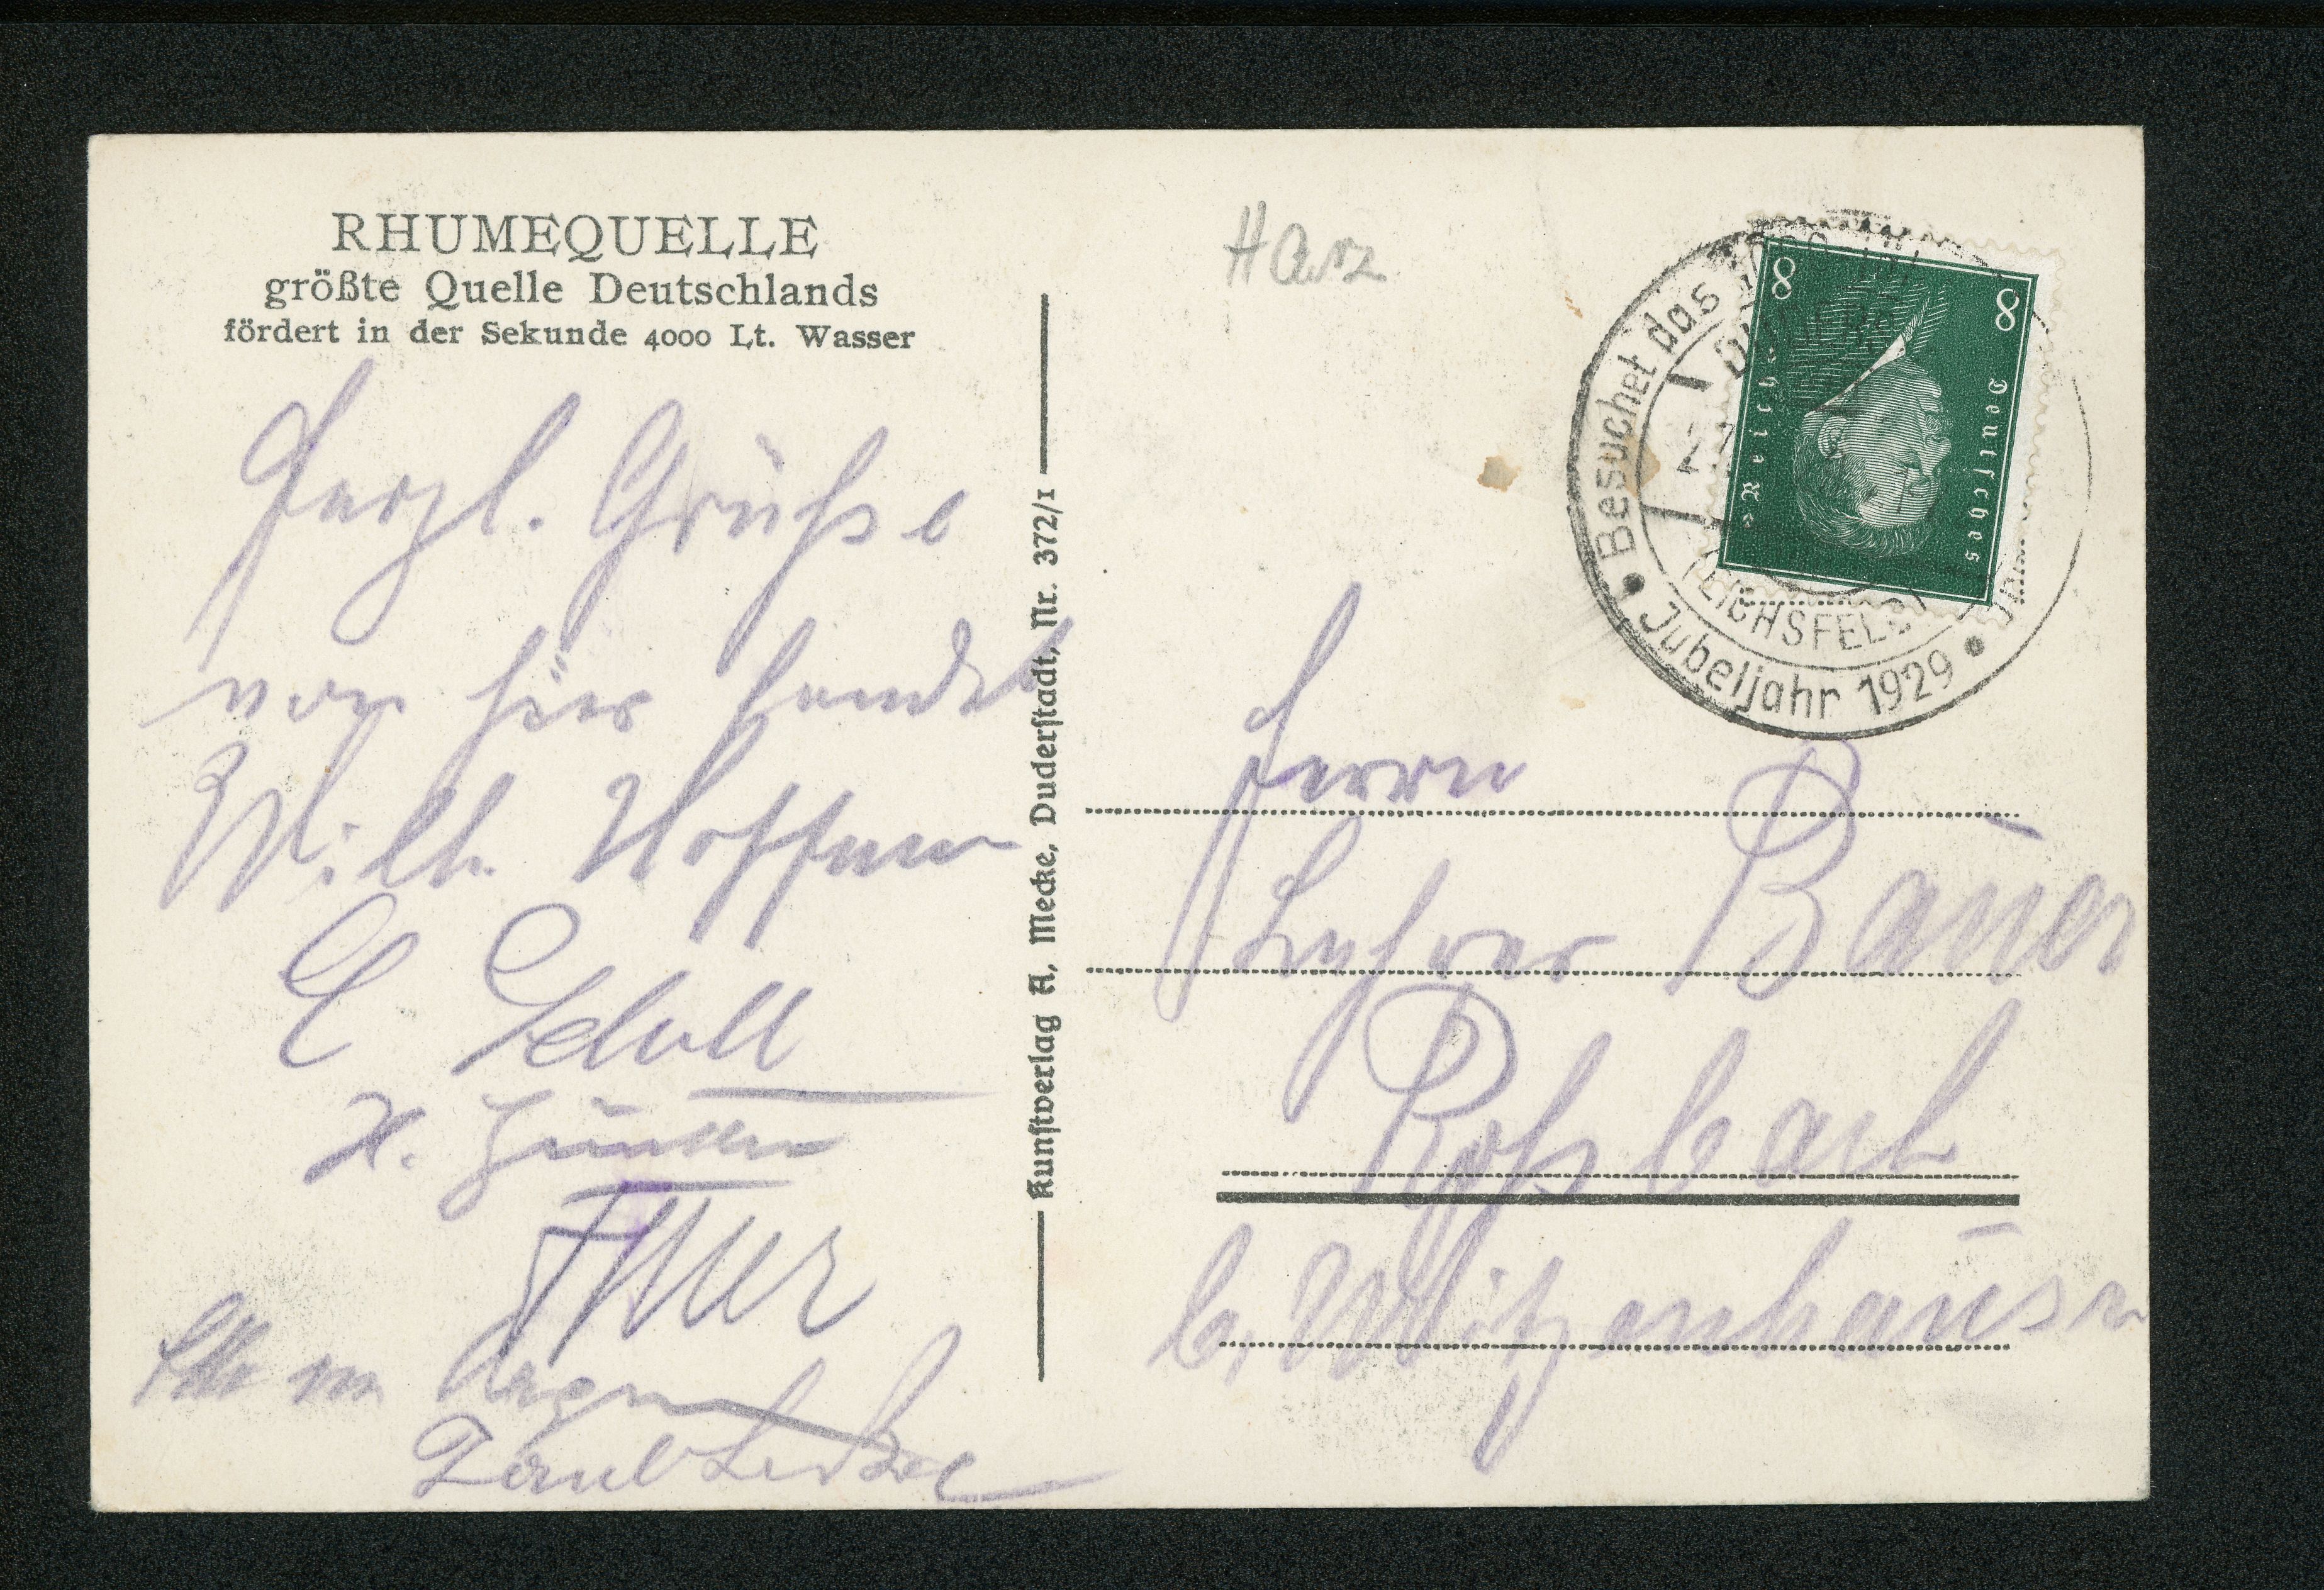 RHUMEQUELLE
größte Quelle Deutschlands
fördert in der Sekunde 4000 Lt. Wasser
Herzl. Grüße
von hier sendet
Wilh. Hoffmann
E. Scholl
H.
Kunstverlag A. Mecke, Duderstadt, Nr. 372/1
Harz
Besuchet das
EICHSFELD
Jubeljahr 1929
8 8
Deutsches
Reich
Herrn
Lehrer Bauer
Roßbach
b. Witzenhausen